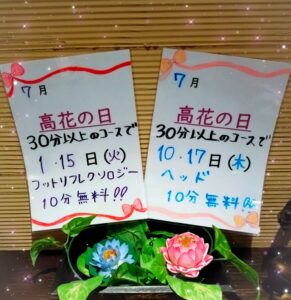 7月
高花の日
30分以上のコースで
1・15日(火)
フットリフレクソロジー
10分無料!!
7月
高花の日
30分以上のコースで
10・17日(木)
ヘッド
10分無料!!